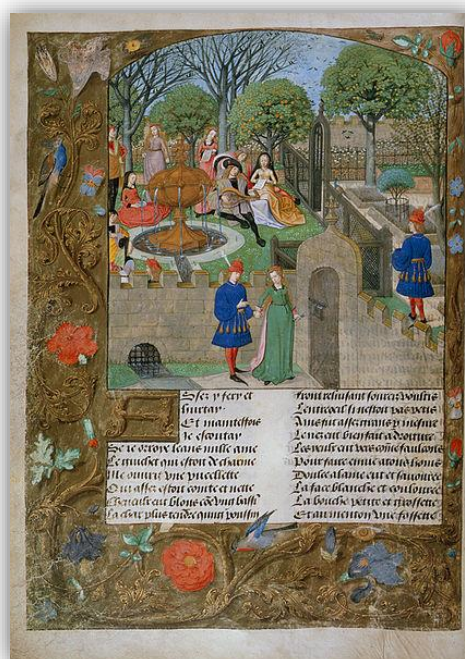 Assez y fery et
hurtay
Et maintesfois
je escoutay
Se je orroye leans nulle ame
Le guichet qui estoit de charme
Me ouurit vne pucellette
Qui assez estoit cointe et nette
Cheueulx eut blons cõe vng bassĩ
La char plus tendre quung poussin
Front reluisant sourcilz voultis
Lentroeil si nestoit pas petis
Ains fut assez grans p mesure
Le nez eut bien fait a droiture
Les yeulx eut vers come faulcons
Pour faire enuie a tous homs
Doulce alaine eut et sauouree
La face blanche et coulouree
La bouche petite et grossette
Et au menton vne fossette